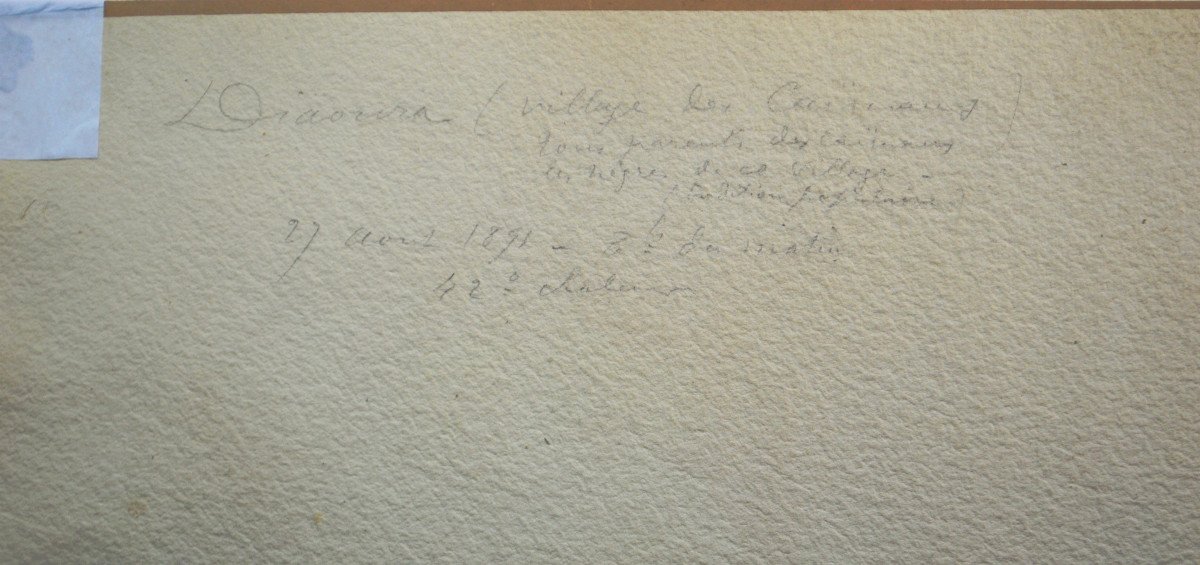 Diaoura (village des Caïmans)
tous parents des caïmans
les nègres de ce village -
(tradition populaire)
27 août 1891 - 3h du matin
42° chaleur